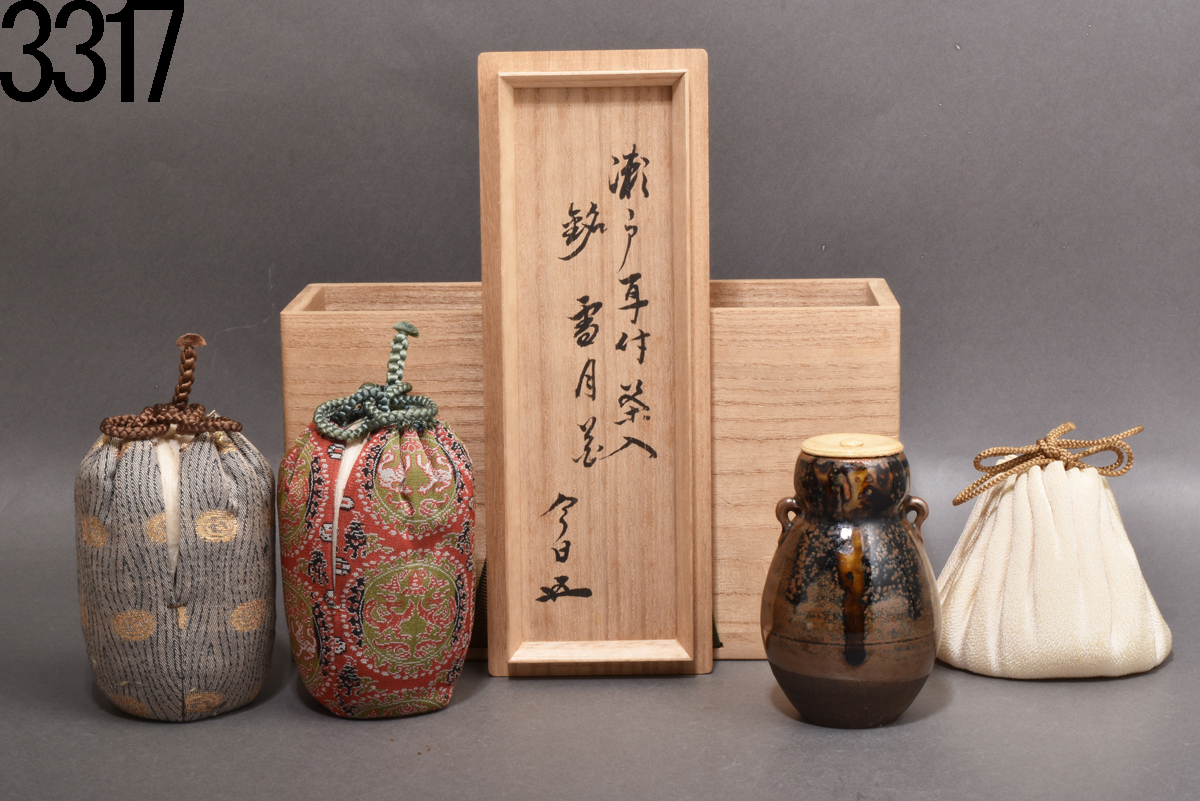 3317
瀬戸耳付茶入
銘 雪月花
今日